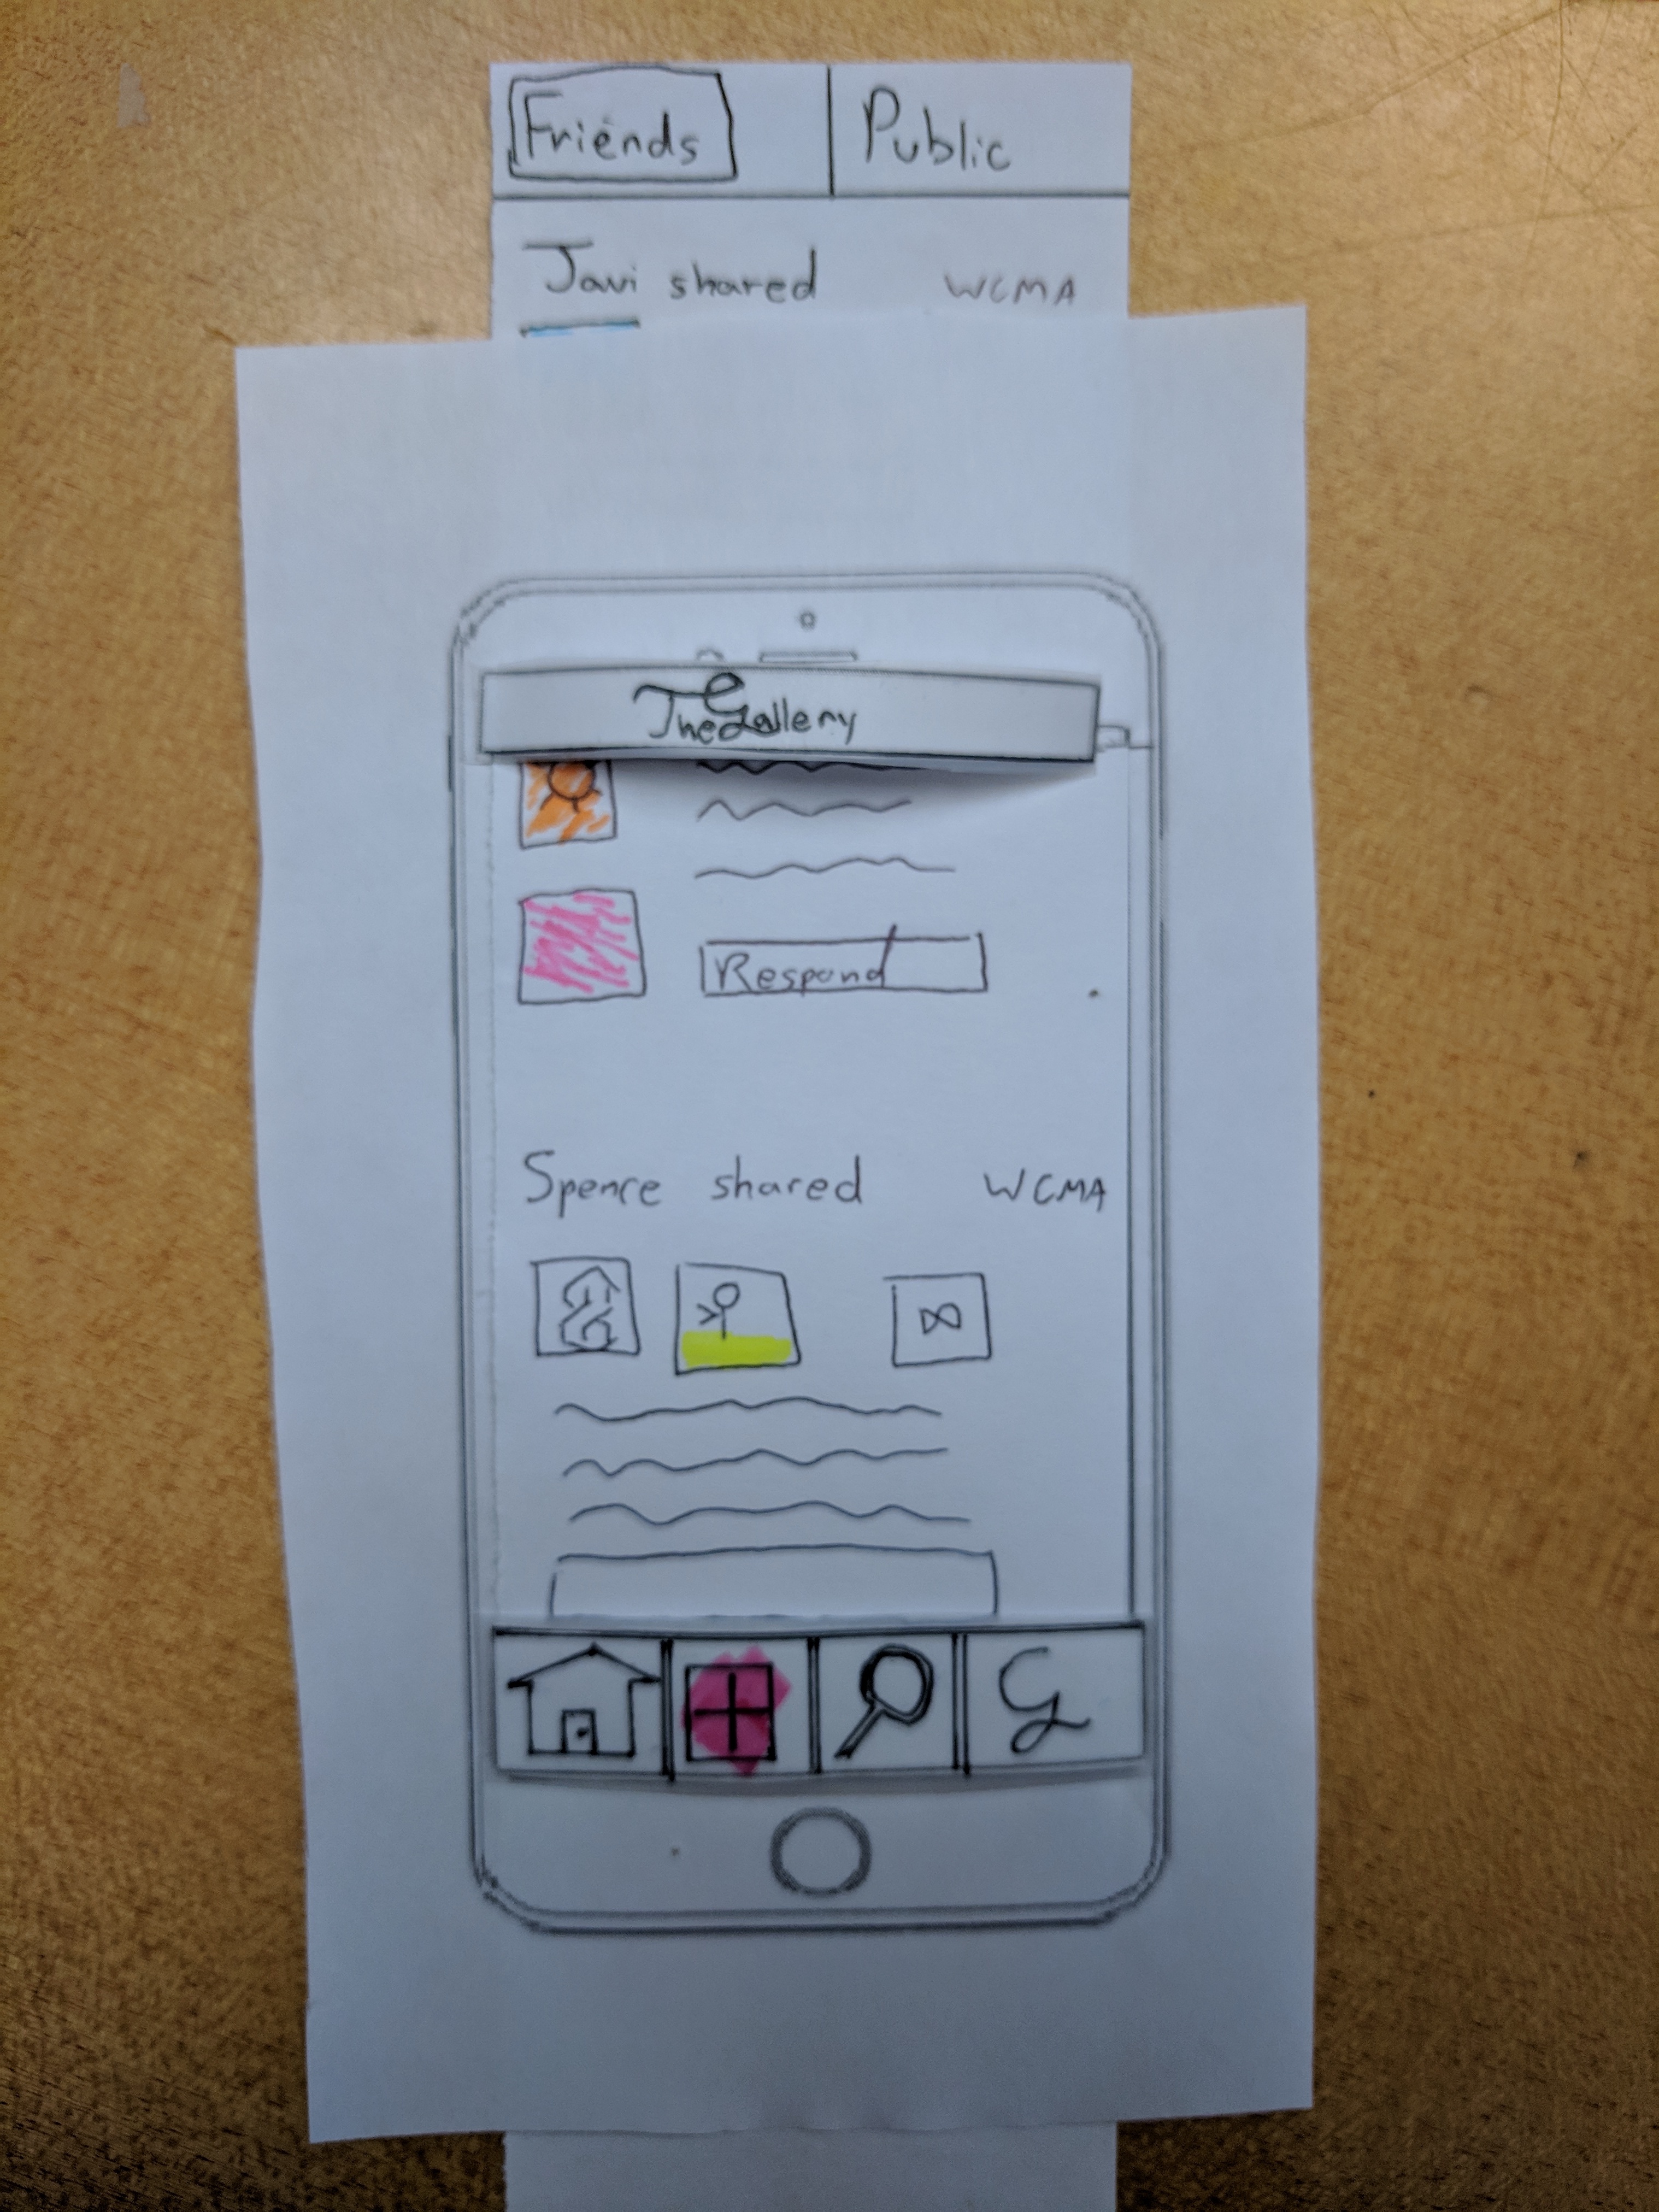 Friends Public
Javi shared WCMA
The Gallery
Respond
Spence shared WCMA
G